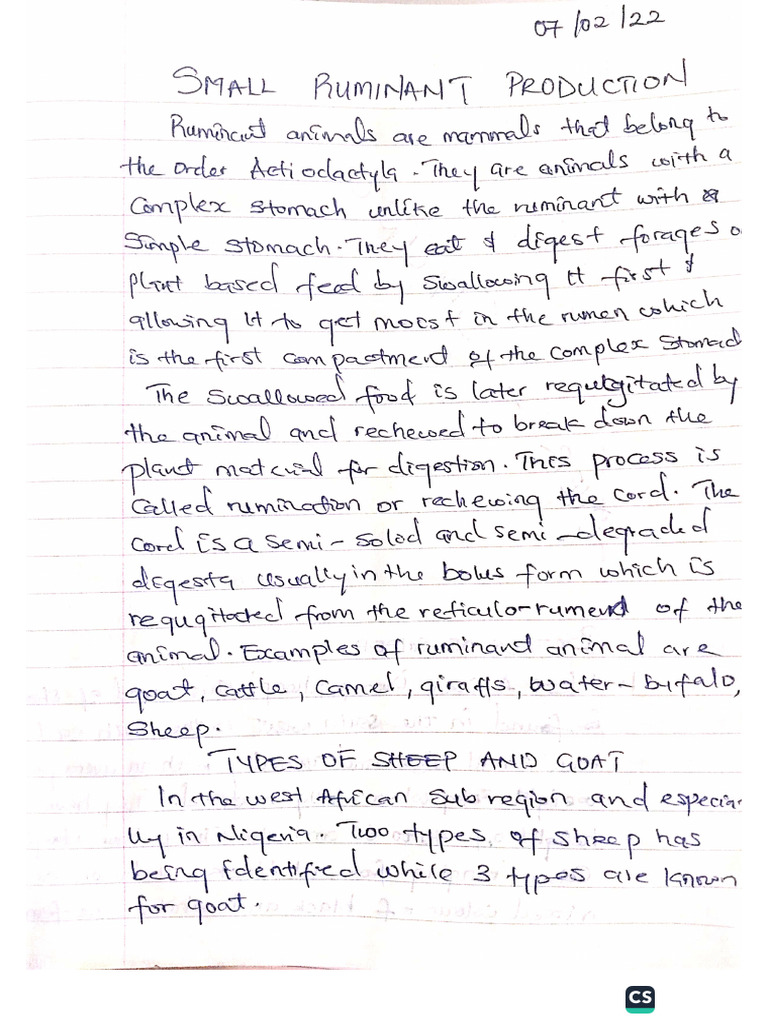 07/02/22
SMALL RUMINANT PRODUCTION
Ruminant animals are mammals that belong to
the order Actiodactyla. They are animals with a
complex stomach unlike the ruminant with a
Simple stomach. They eat & digest forages o
plant based feed by swallowing it first &
allowing it to get moist in the rumen which
is the first compactment of the complex stomac
The swallowed food is later requrgitated by
the animal and rechewed to break down the
plant material for digestion. This process is
called rumination or rechewing the cord. The
cord is a semi-solod and semi-degraded
digesta usually in the bolus form which is
requgitated from the reticulo-rumend of the
animal. Examples of ruminand animal are
goat, cattle, camel, giraffs, water-bufalo,
Sheep.
TYPES OF SHEEP AND GOAT
In the west African sub region and especia
lly in Nigeria. Two types of sheep has
being identified while 3 types are known
for goat.
CS